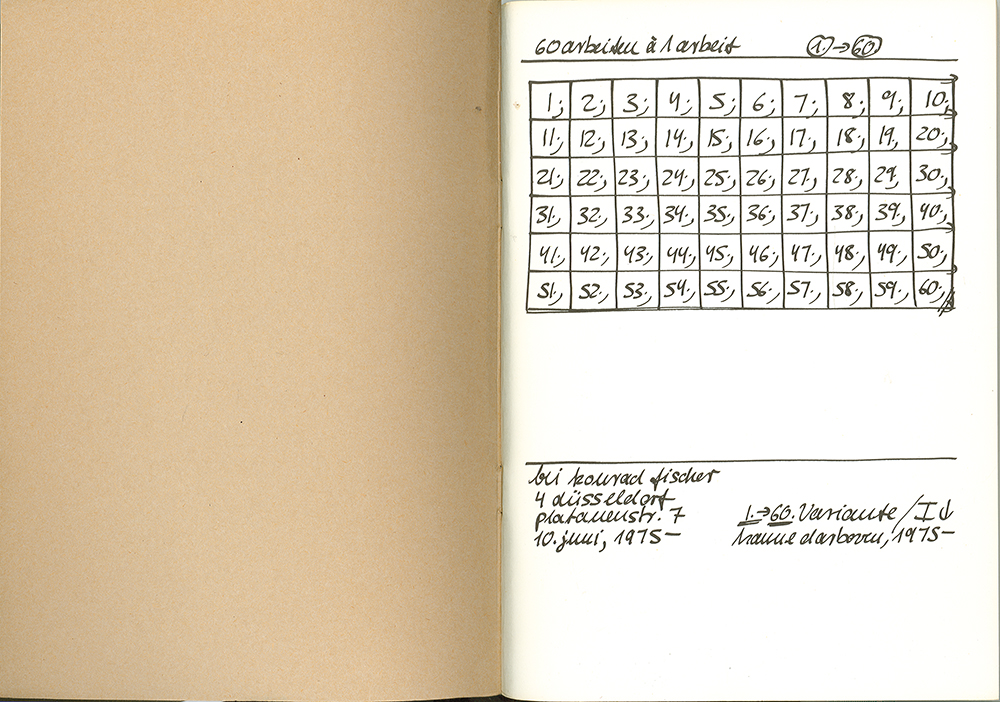 60 arbeiten à 1 arbeit 1.→60
1; 2; 3; 4; 5; 6; 7; 8; 9; 10;
11; 12; 13; 14; 15; 16; 17; 18; 19, 20;
21; 22; 23; 24; 25; 26; 27; 28; 29; 30;
31; 32; 33; 34; 35; 36; 37; 38; 39; 40;
41; 42; 43; 44; 45; 46; 47; 48; 49; 50;
51; 52; 53; 54; 55; 56; 57; 58; 59; 60;
bei konrad fischer
4 düsseldorf
platanenstr. 7 1.→60. Variante / I ↓
10. juni, 1975– hanne darboven, 1975–